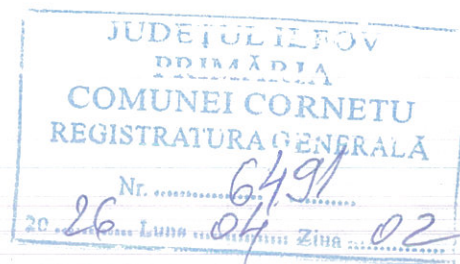 JUDEȚUL ILFOV
PRIMĂRIA
COMUNEI CORNETU
REGISTRATURA GENERALĂ
Nr. ........ 6491 ........
20 26 Luna 04 Ziua 02